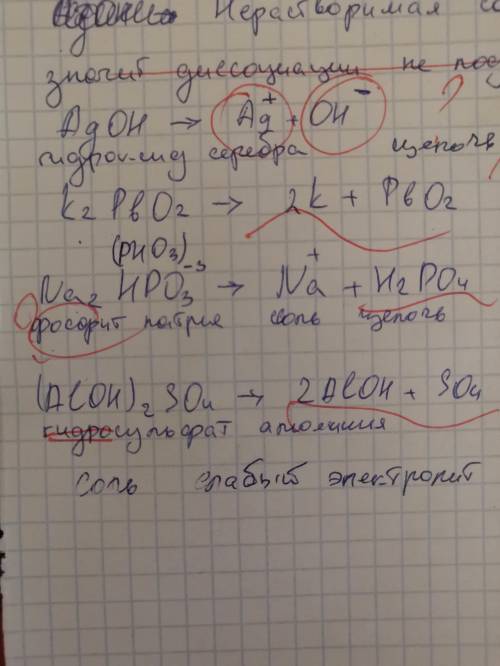 Нерастворимая
значит диссоциации не
AgOH → Ag⁺ + OH⁻ ?
гидроксид серебра щелочь
K₂PbO₂ → 2K + PbO₂
(PHO₃)⁻³
Na₂HPO₃ → Na⁺ + H₂PO₄
фосорит натрия соль щелочь
(AlOH)₂SO₄ → 2AlOH + SO₄
гидросульфат алюминия
соль слабый электролит